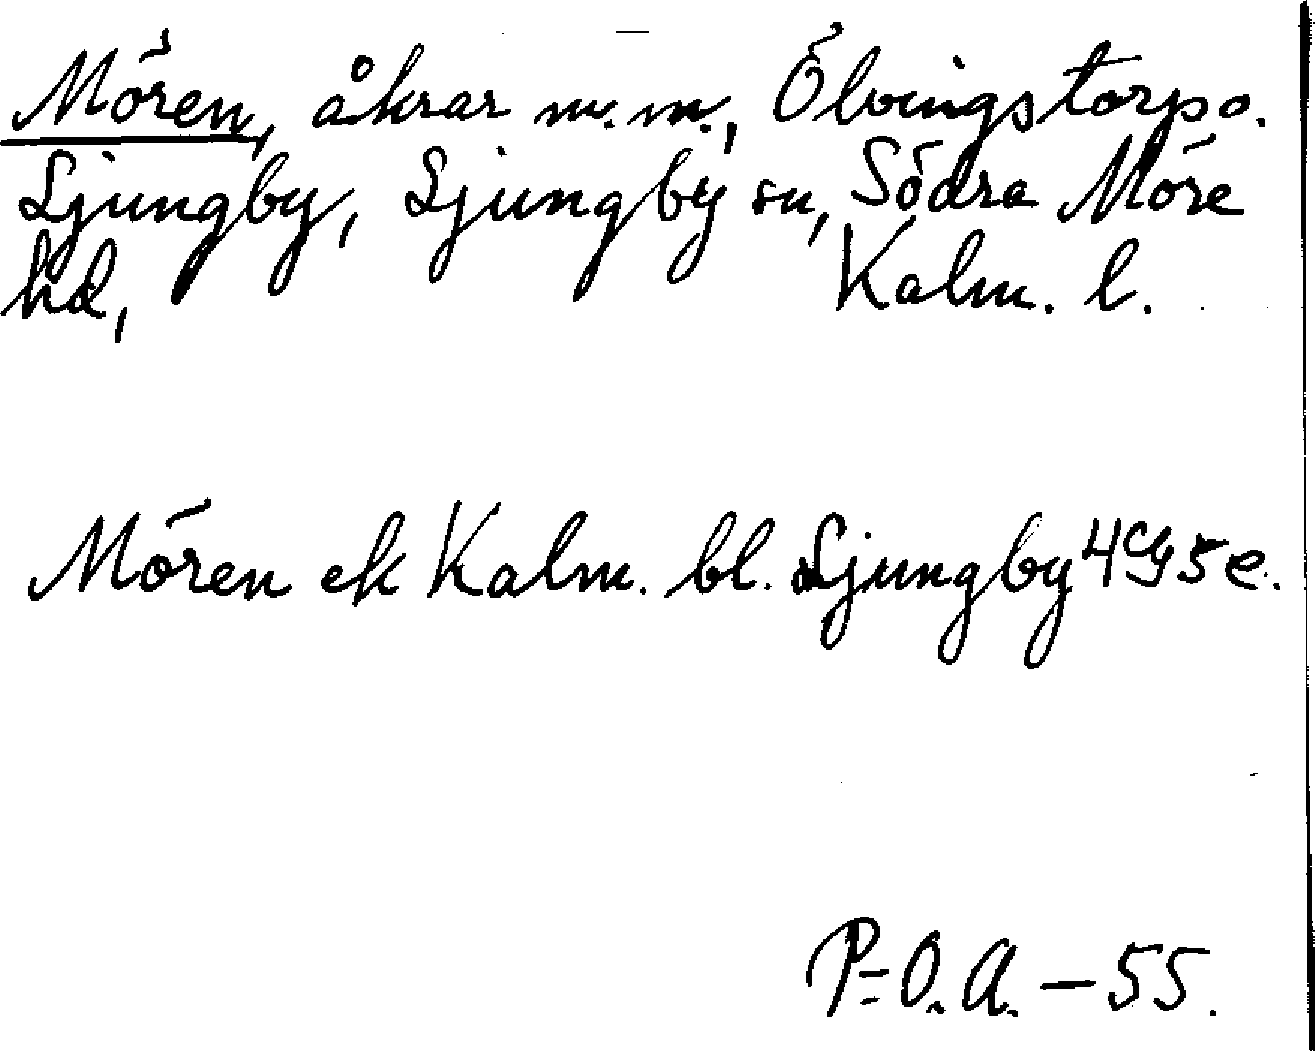 Mören, åkrar m.m., Ölvingstorp o.
Ljungby, Ljungby sn, Södra Möre
hd, Kalm. l.
Mören ek Kalm. bl. Ljungby 4G5e.
P=O.A. – 55.